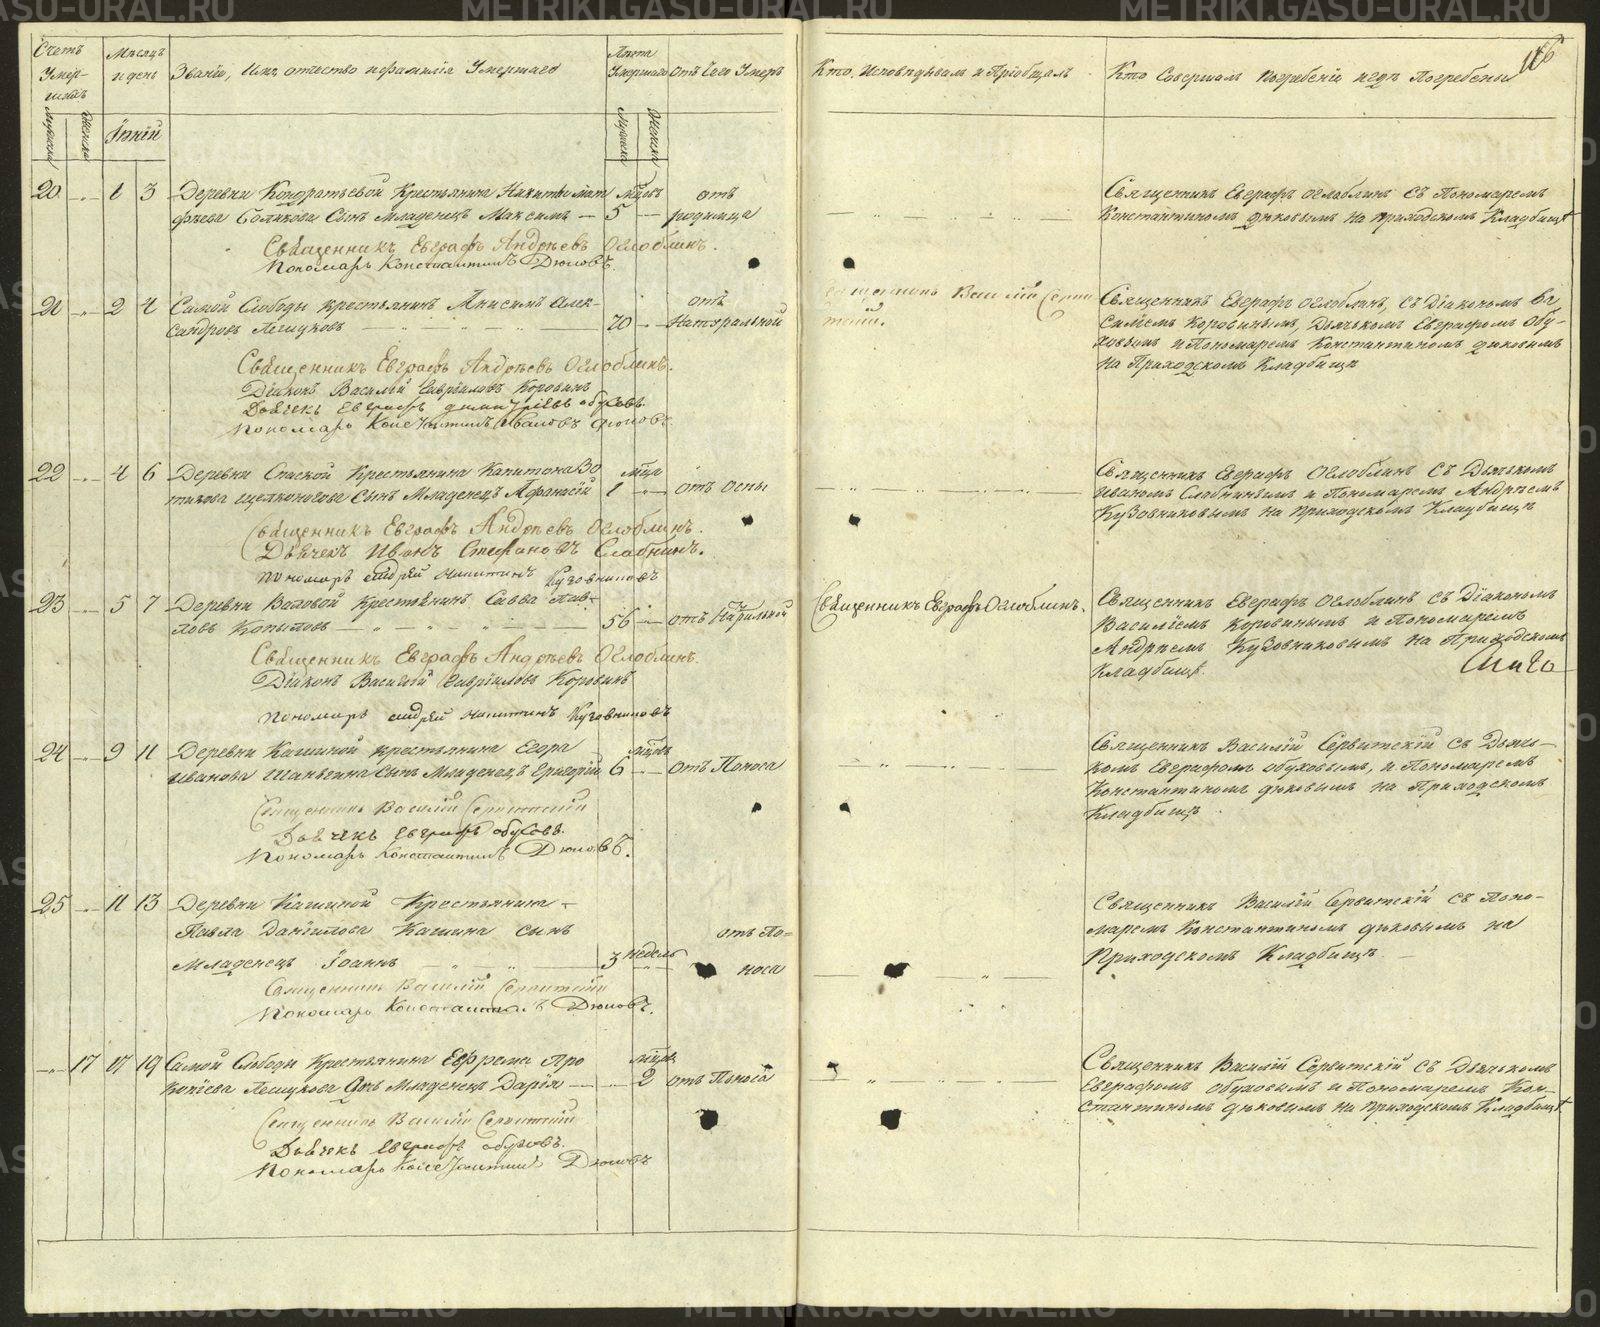 Счетъ Умер-шихъ
Мѣсяцъ и день
Званіе, Имя, отчество и фамилія Умершаго
Лѣта Умершаго
Отъ Чего Умеръ
Кто Исповѣдывалъ и Пріобщалъ
Кто Совершалъ Погребеніе и гдѣ Погребены
116
Іюній
20 1 3 Деревни Кондратьевой Крестьянина Никиты Мат
фѣева сынъ Младенецъ Максимъ
5
отъ
родимца
Священникъ Евграфъ Оглоблинъ съ Пономаремъ
Константиномъ Дюковымъ на приходскомъ Кладбищѣ
Священникъ Евграфъ Андрѣевъ Оглоблинъ.
Пономарь Константинъ Дюковъ.
21 2 4 Самой Слободы крестьянинъ Анисимъ Алек-
сандровъ Лешуковъ
70
отъ
Натуральной
Священникъ Василій
Священникъ Евграфъ Оглоблинъ, съ Діакономъ Ва
силіемъ Коровинымъ, Дьячькомъ Евграфомъ Обу-
ховымъ и Пономаремъ Константиномъ Дюковымъ
на Приходскомъ Кладбищѣ
Священникъ Евграфъ Андрѣевъ Оглоблинъ.
Діаконъ Василій Гавріиловъ Коровинъ
Дьячекъ Евграфъ Димитріевъ обуховъ.
Пономарь Константинъ Ивановъ Дюковъ.
22 4 6 Деревни Спаской Крестьянина Капитона Зо
тикова сынъ Младенецъ Афанасій
1
отъ Оспы
Священникъ Евграфъ Оглоблинъ съ Дьячькомъ
Иваномъ Слабнинымъ и Пономаремъ Андрѣемъ
Кузовниковымъ на приходскомъ Кладбищѣ
Священникъ Евграфъ Андрѣевъ Оглоблинъ.
Дьячекъ Иванъ Стефановъ Слабнинъ.
Пономарь Андрей Никитинъ Кузовниковъ
23 5 7 Деревни Крестьянинъ Савва Пав-
ловъ Копыловъ
56
отъ
Священникъ Евграфъ Оглоблинъ.
Священникъ Евграфъ Оглоблинъ съ Діакономъ
Василіемъ Коровинымъ и Пономаремъ
Андрѣемъ Кузовниковымъ на Приходскомъ
Кладбищѣ.
Священникъ Евграфъ Андрѣевъ Оглоблинъ.
Діаконъ Василій Гавріиловъ Коровинъ
Пономарь Андрей Никитинъ Кузовниковъ
24 9 11 Деревни Кашиной крестьянина Егора
Иванова сынъ Младенецъ Григорій
6
отъ Поноса
Священникъ Василій Сервитскій съ Дьячь-
комъ Евграфомъ Обуховымъ, и Пономаремъ
Константиномъ Дюковымъ на Приходскомъ
Кладбищѣ
Священникъ Василій
Дьячекъ Евграфъ обуховъ.
Пономарь Константинъ Дюковъ.
25 11 13 Деревни Кашиной Крестьянина
Павла Даніилова Кашина сынъ
Младенецъ Іоаннъ
3 недель
отъ По-
носа
Священникъ Василій Сервитскій съ Поно-
маремъ Константиномъ Дюковымъ на
Приходскомъ Кладбищѣ.
Священникъ Василій
Пономарь Константинъ Дюковъ.
17 17 19 Самой Слободы Крестьянина Ефрема Про
копіева Лешукова дочь Младенецъ Дарія
2
отъ Поноса
Священникъ Василій Сервитскій съ Дьячькомъ
Евграфомъ Обуховымъ и Пономаремъ Кон-
стантиномъ Дюковымъ на приходскомъ Кладбищѣ
Священникъ Василій
Дьячекъ Евграфъ обуховъ.
Пономарь Константинъ Дюковъ
METRIKI.GASO-URAL.RU